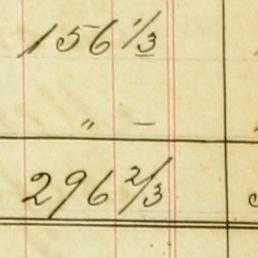 156 1/3
" —
296 2/3